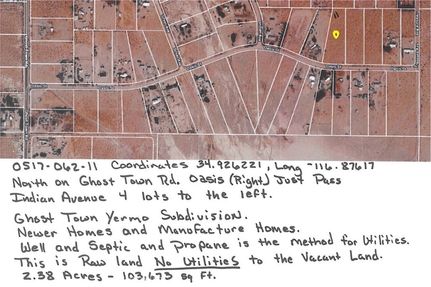 0517-062-11 Coordinates 34.926221, Long -116.87617
North on Ghost Town Rd. Oasis (Right) Just Pass
Indian Avenue 4 lots to the left.
Ghost Town Yermo Subdivision.
Newer Homes and Manufacture Homes.
Well and Septic and Propane is the method for Utilities.
This is Raw land No Utilities to the Vacant Land.
2.38 Acres - 103,673 sq Ft.